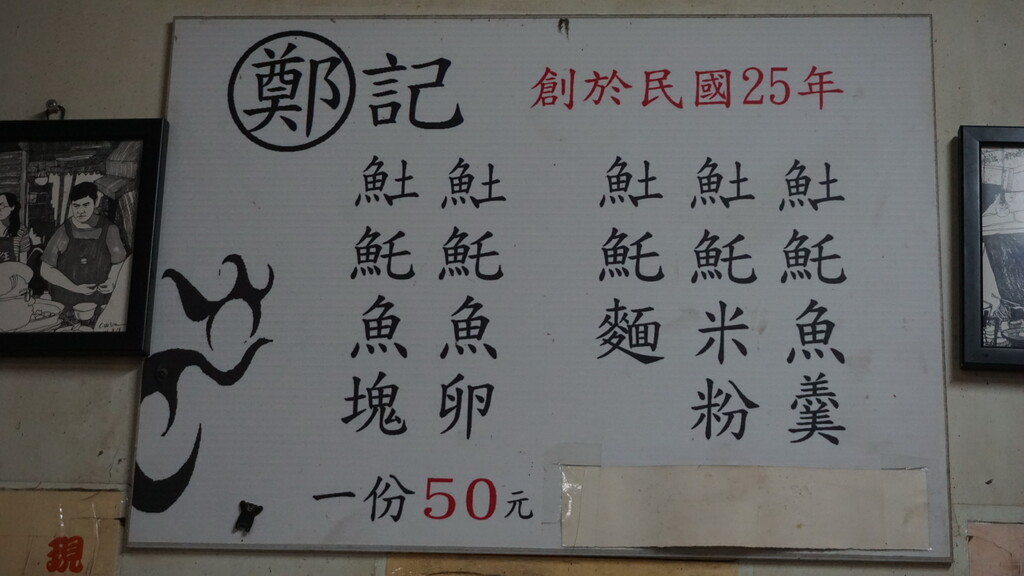 鄭記
創於民國25年
䰲魠魚羹
䰲魠米粉
䰲魠麵
䰲魠魚卵
䰲魠魚塊
一份50元
現